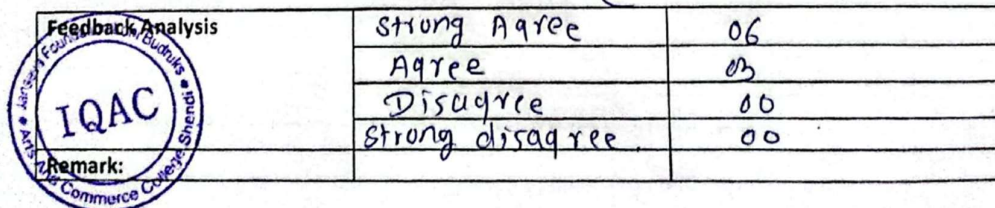 Feedback Analysis
Strong Agree 06
Agree 03
Disagree 00
Strong disagree. 00
Remark:
IQAC
Arts And Commerce College, Shendi